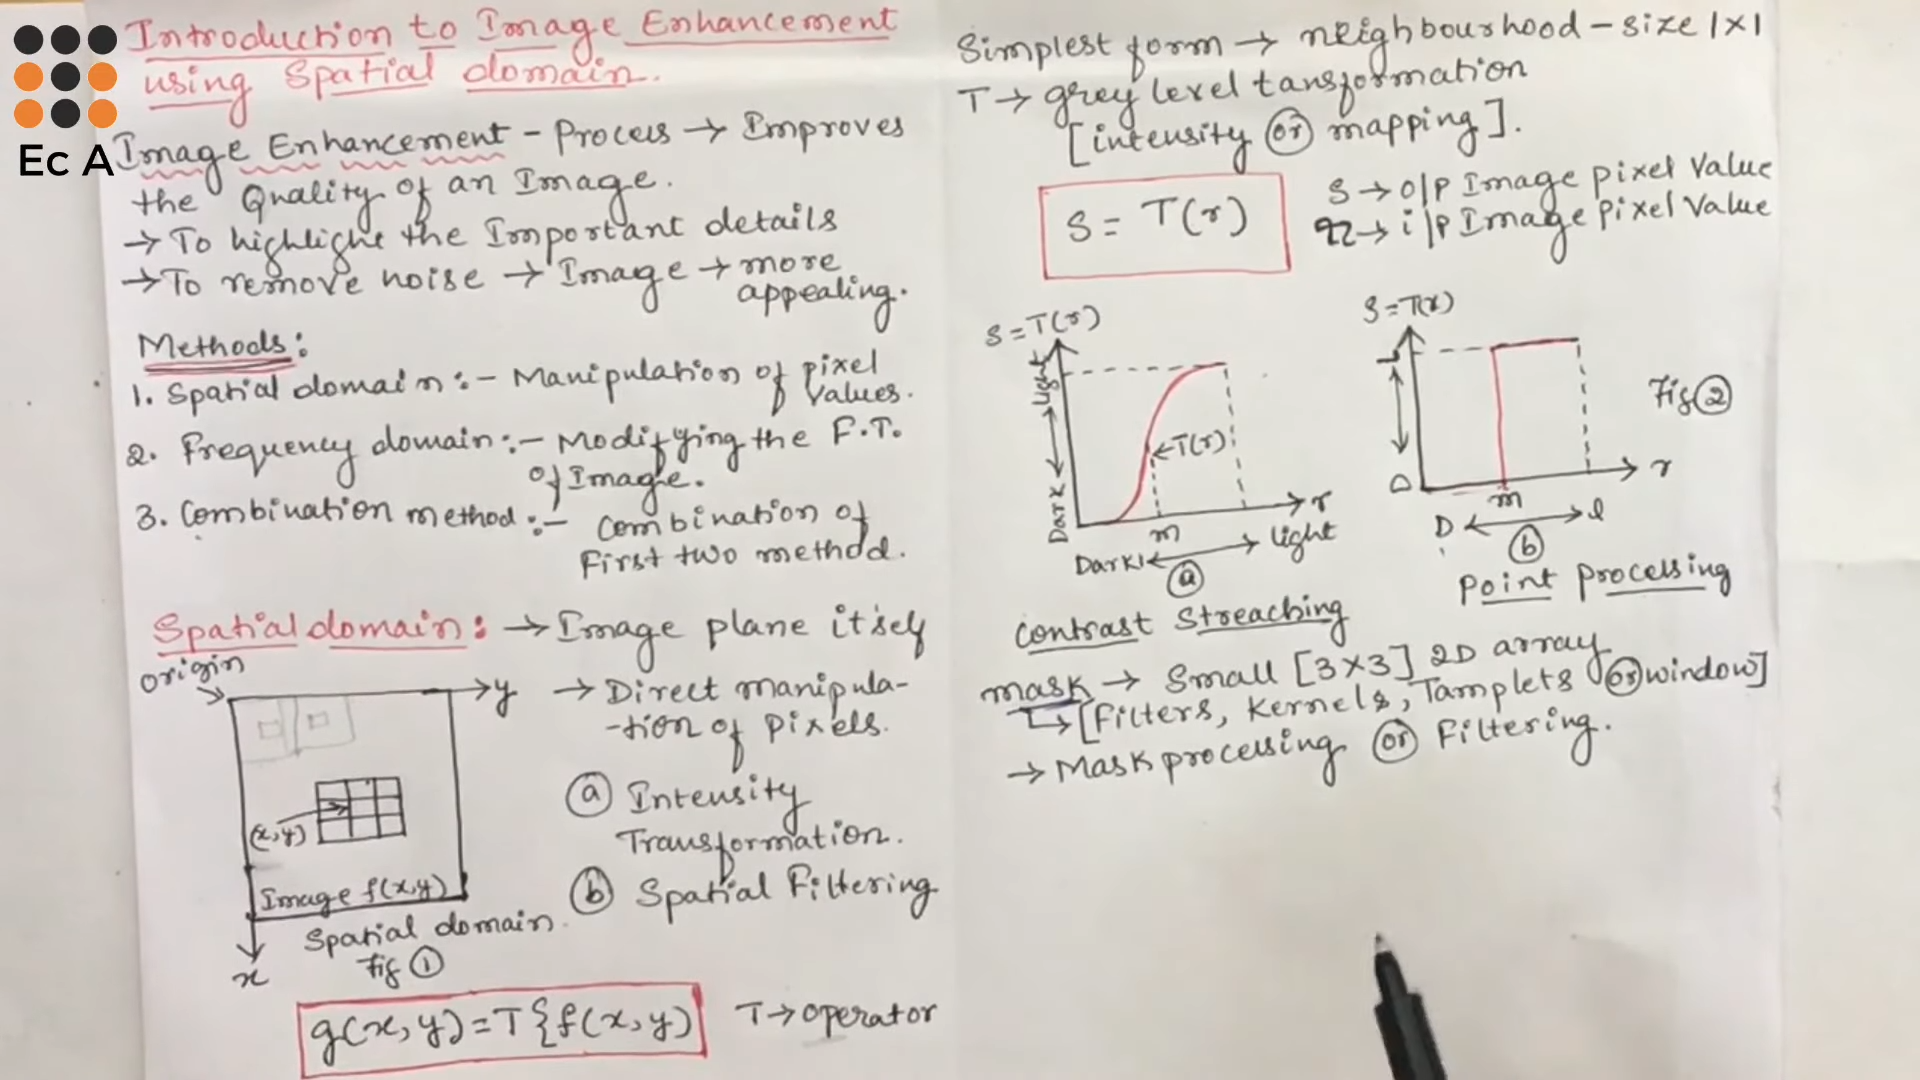 Ec A
Introduction to Image Enhancement
using Spatial domain.
Image Enhancement - Process → Improves
the Quality of an Image.
→ To highlight the Important details
→ To remove noise → Image → more
appealing.
Methods:
1. Spatial domain :- Manipulation of pixel
Values.
2. Frequency domain :- Modifying the F.T.
of Image.
3. Combination method :- Combination of
First two method.
Spatial domain: → Image plane itself
origin
y
→ Direct manipula-
-tion of pixels.
(x,y)
ⓐ Intensity
Transformation.
Image f(x,y)
ⓑ Spatial Filtering
Spatial domain.
x
Fig ①
g(x,y) = T{f(x,y)
T → operator
Simplest form → neighbourhood - size 1x1
T → grey level tansformation
[intensity or mapping].
S = T(r)
S → o/p Image pixel Value
r → i/p Image pixel Value
S = T(r)
Dark ↔ Light
← T(r)
r
m
Dark ↔ Light
ⓐ
Contrast Streaching
S = T(r)
L
D
r
m
D ↔ l
ⓑ
Fig ②
Point Processing
mask → Small [3x3] 2D array
↳ [Filters, Kernels, Tamplets or window]
→ Mask processing or Filtering.